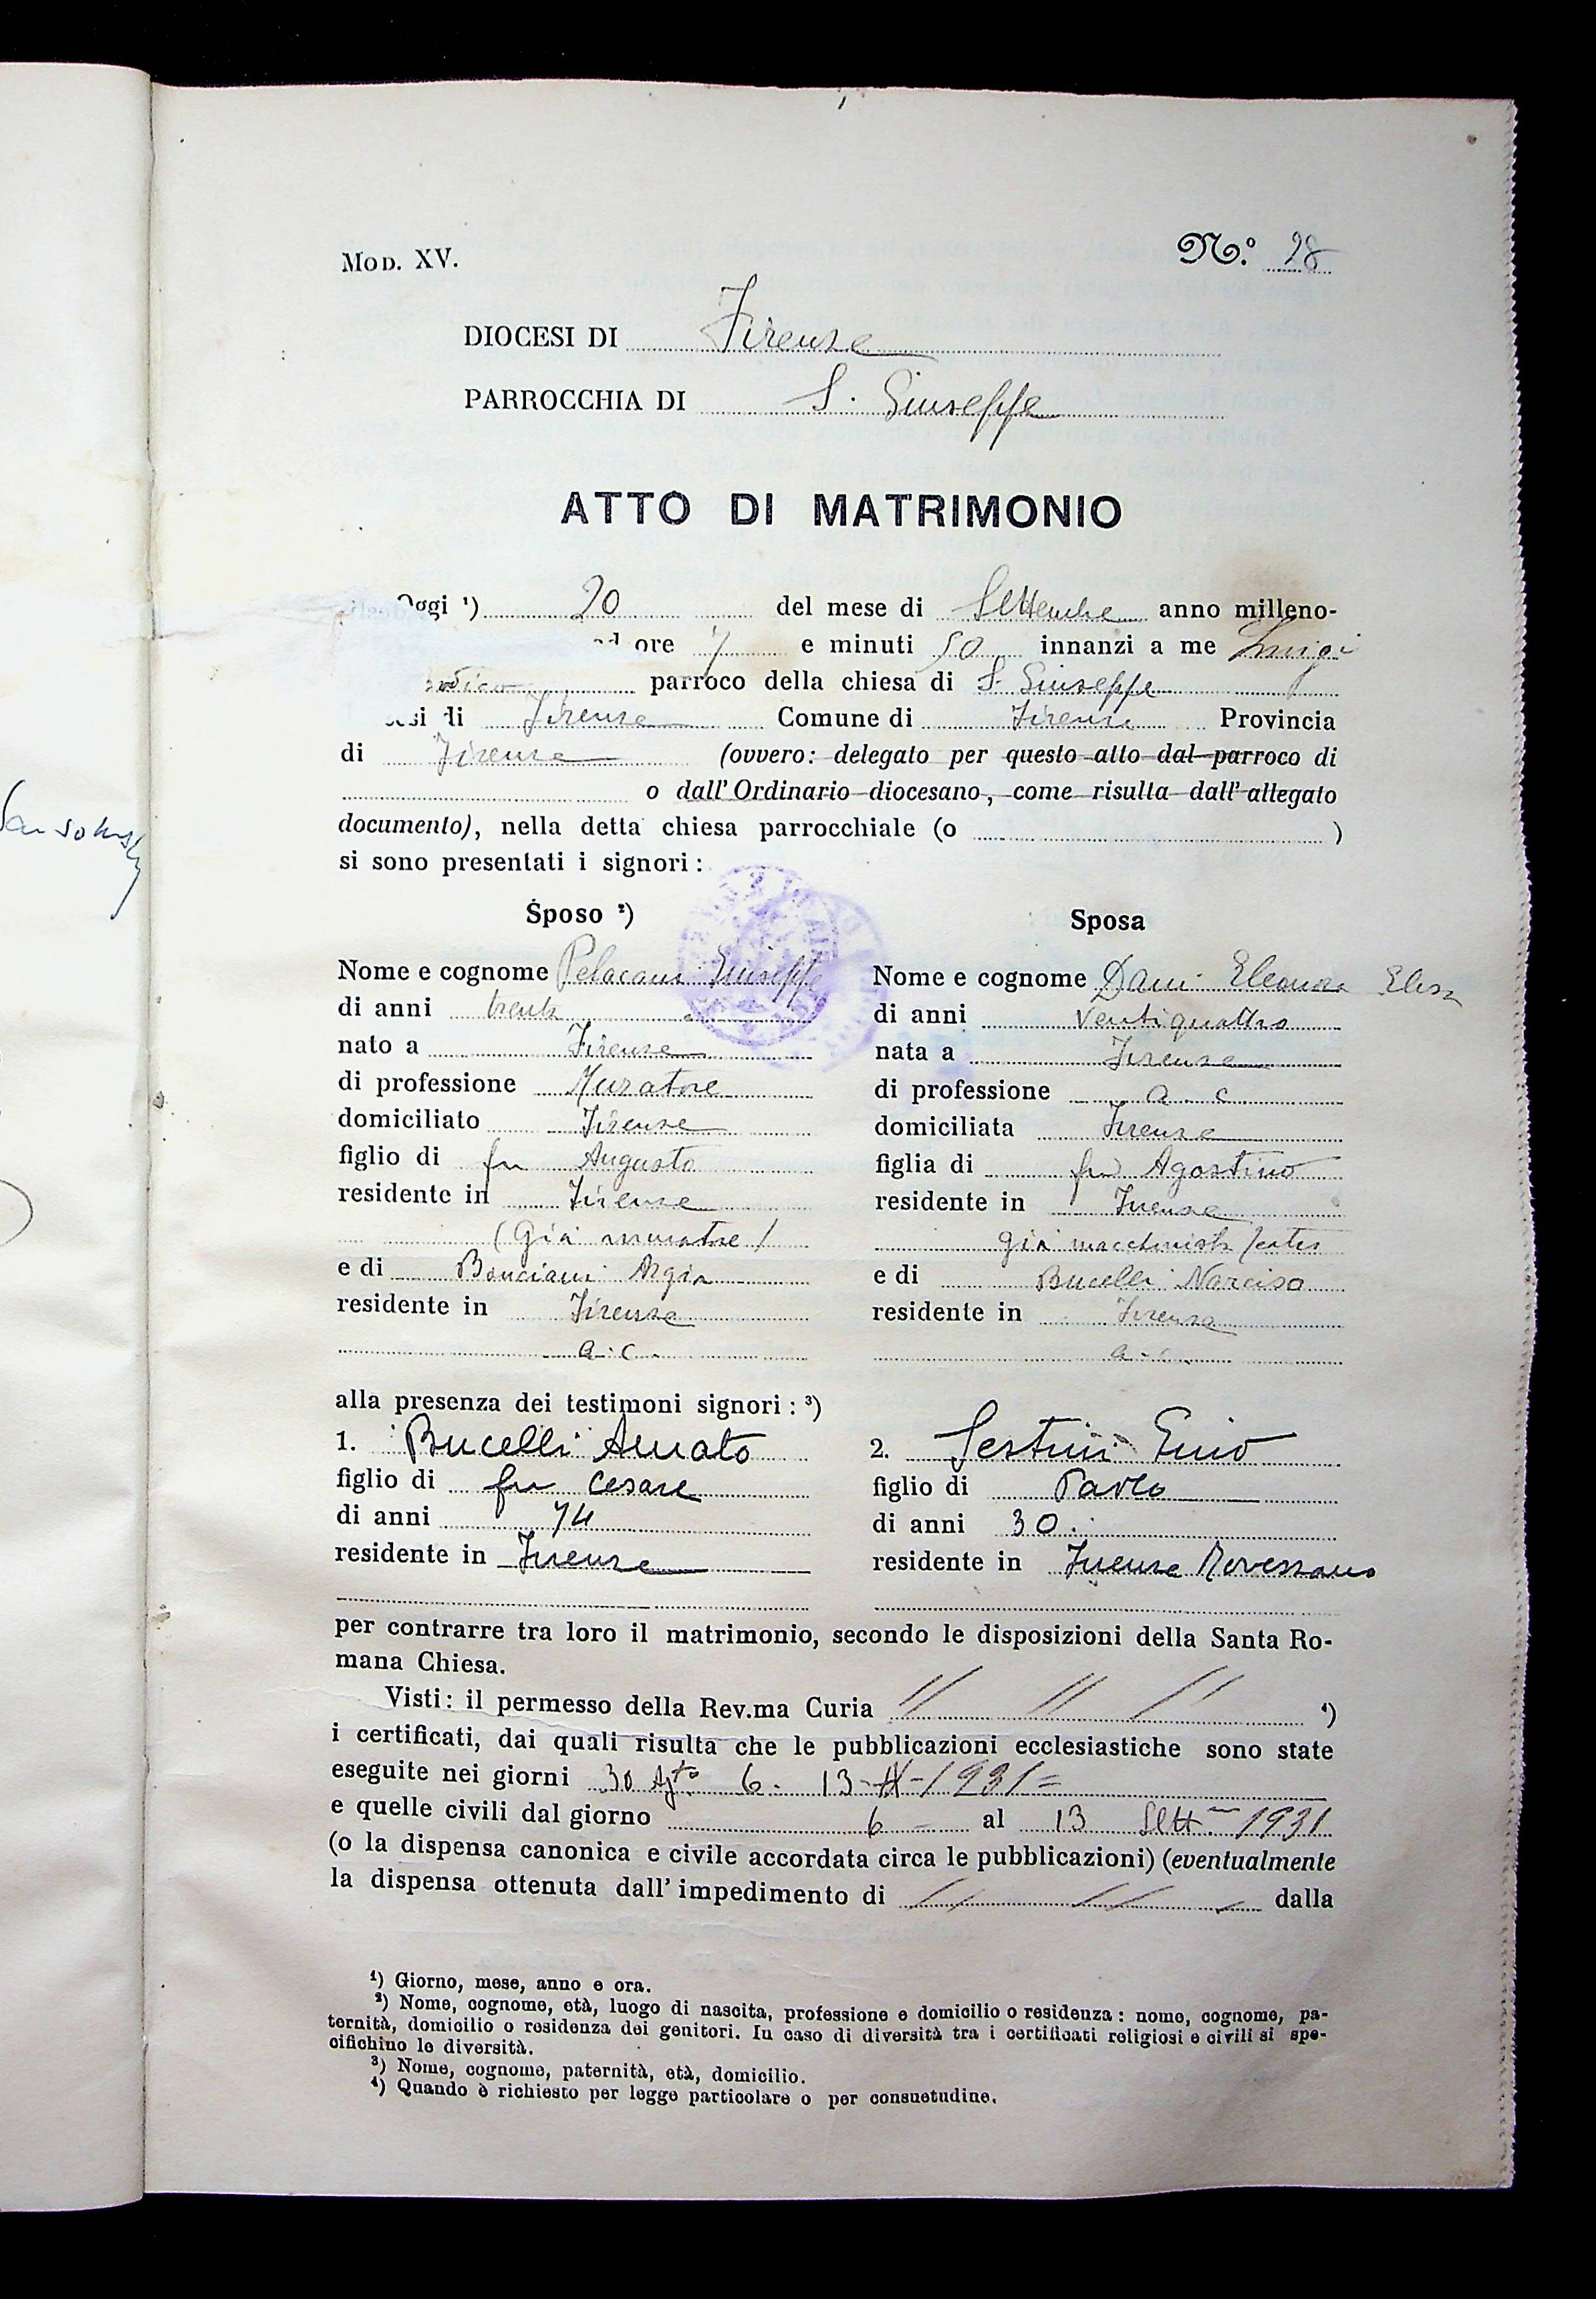 Mod. XV.
N.° 28
DIOCESI DI Firenze
PARROCCHIA DI S. Giuseppe
ATTO DI MATRIMONIO
Oggi ¹) 20 del mese di Settembre anno milleno-
ore 7 e minuti 50 innanzi a me Luigi
parroco della chiesa di S. Giuseppe
di Firenze Comune di Firenze Provincia
di Firenze (ovvero: delegato per questo atto dal parroco di
o dall' Ordinario diocesano, come risulta dall' allegato
documento), nella detta chiesa parrocchiale (o )
si sono presentati i signori:
Sposo ²)
Nome e cognome Pelacani Giuseppe
di anni trenta
nato a Firenze
di professione Muratore
domiciliato Firenze
figlio di fu Augusto
residente in Firenze
(Già muratore)
e di Bonciani Argia
residente in Firenze
a. c.
Sposa
Nome e cognome Dani Eleonora Elisa
di anni Ventiquattro
nata a Firenze
di professione a c
domiciliata Firenze
figlia di fu Agostino
residente in Firenze
già macchinista
e di Bucelli Narcisa
residente in Firenze
a. c.
alla presenza dei testimoni signori: ³)
1. Bucelli Amato
figlio di fu Cesare
di anni 74
residente in Firenze
2. Sestini Enio
figlio di Paolo
di anni 30.
residente in Firenze Rovezzano
per contrarre tra loro il matrimonio, secondo le disposizioni della Santa Ro-
mana Chiesa.
Visti: il permesso della Rev.ma Curia // // // ⁴)
i certificati, dai quali risulta che le pubblicazioni ecclesiastiche sono state
eseguite nei giorni 30 Ag.to 6 - 13-IX-1931=
e quelle civili dal giorno 6 - al 13 Sett. 1931
(o la dispensa canonica e civile accordata circa le pubblicazioni) (eventualmente
la dispensa ottenuta dall' impedimento di // // dalla
¹) Giorno, mese, anno e ora.
²) Nome, cognome, età, luogo di nascita, professione e domicilio o residenza: nome, cognome, pa-
ternità, domicilio o residenza dei genitori. In caso di diversità tra i certificati religiosi e civili si spe-
cifichino le diversità.
³) Nome, cognome, paternità, età, domicilio.
⁴) Quando è richiesto per legge particolare o per consuetudine.